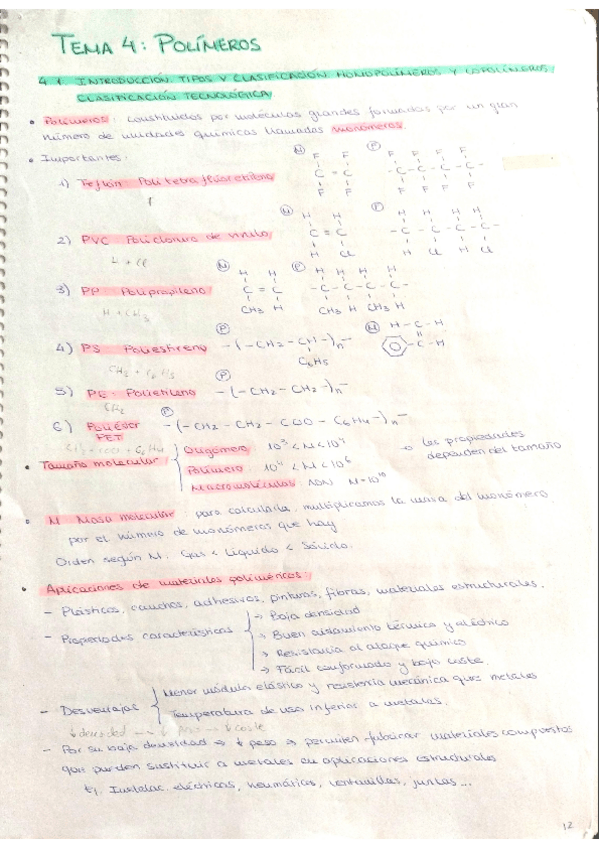 TEMA 4: POLÍMEROS
4.1. INTRODUCCIÓN. TIPOS Y CLASIFICACIÓN. HOMOPOLÍMEROS Y COPOLÍMEROS.
CLASIFICACIÓN TECNOLÓGICA
• Polímeros: constituidos por moléculas grandes formadas por un gran
número de unidades químicas llamadas monómeros.
• Importantes:
1) Teflón Politetrafluoretileno
M F F C = C F F
P F F F F - C - C - C - C - F F F F
2) PVC Policloruro de vinilo
H + Cl
M H H C = C H Cl
P H H H H - C - C - C - C - H Cl H Cl
3) PP Polipropileno
H + CH3
M H H C = C CH3 H
P H H H H - C - C - C - C - CH3 H CH3 H
4) PS Poliestireno
CH2 + C6H5
P -(-CH2-CH-)n- C6H5
M H-C-H C-H
5) PE Polietileno -(-CH2-CH2-)n-
CH2
P
6) Poliéster -(-CH2-CH2-COO-C6H4-)n-
PET
• Tamaño molecular
Oligómero 10³<M<10⁴
Polímero 10⁴<M<10⁶
Macromoléculas ADN M=10¹⁰
→ las propiedades
dependen del tamaño
• M Masa molecular: para calcularla, multiplicamos la masa del monómero
por el número de monómeros que hay
Orden según M: Gas < Líquido < Sólido.
• Aplicaciones de materiales poliméricos:
- Plásticos, cauchos, adhesivos, pinturas, fibras, materiales estructurales.
- Propiedades características
→ Baja densidad
→ Buen aislamiento térmico y eléctrico
→ Resistencia al ataque químico
→ Fácil conformado y bajo coste.
- Desventajas
Menor módulo elástico y resistencia mecánica que metales
Temperatura de uso inferior a metales.
↓ densidad → ↓ peso → ↓ coste
- Por su baja densidad → ↓ peso → permiten fabricar materiales compuestos
que pueden sustituir a metales en aplicaciones estructurales
Instalac. eléctricas, neumáticos, ventanillas, juntas...
12